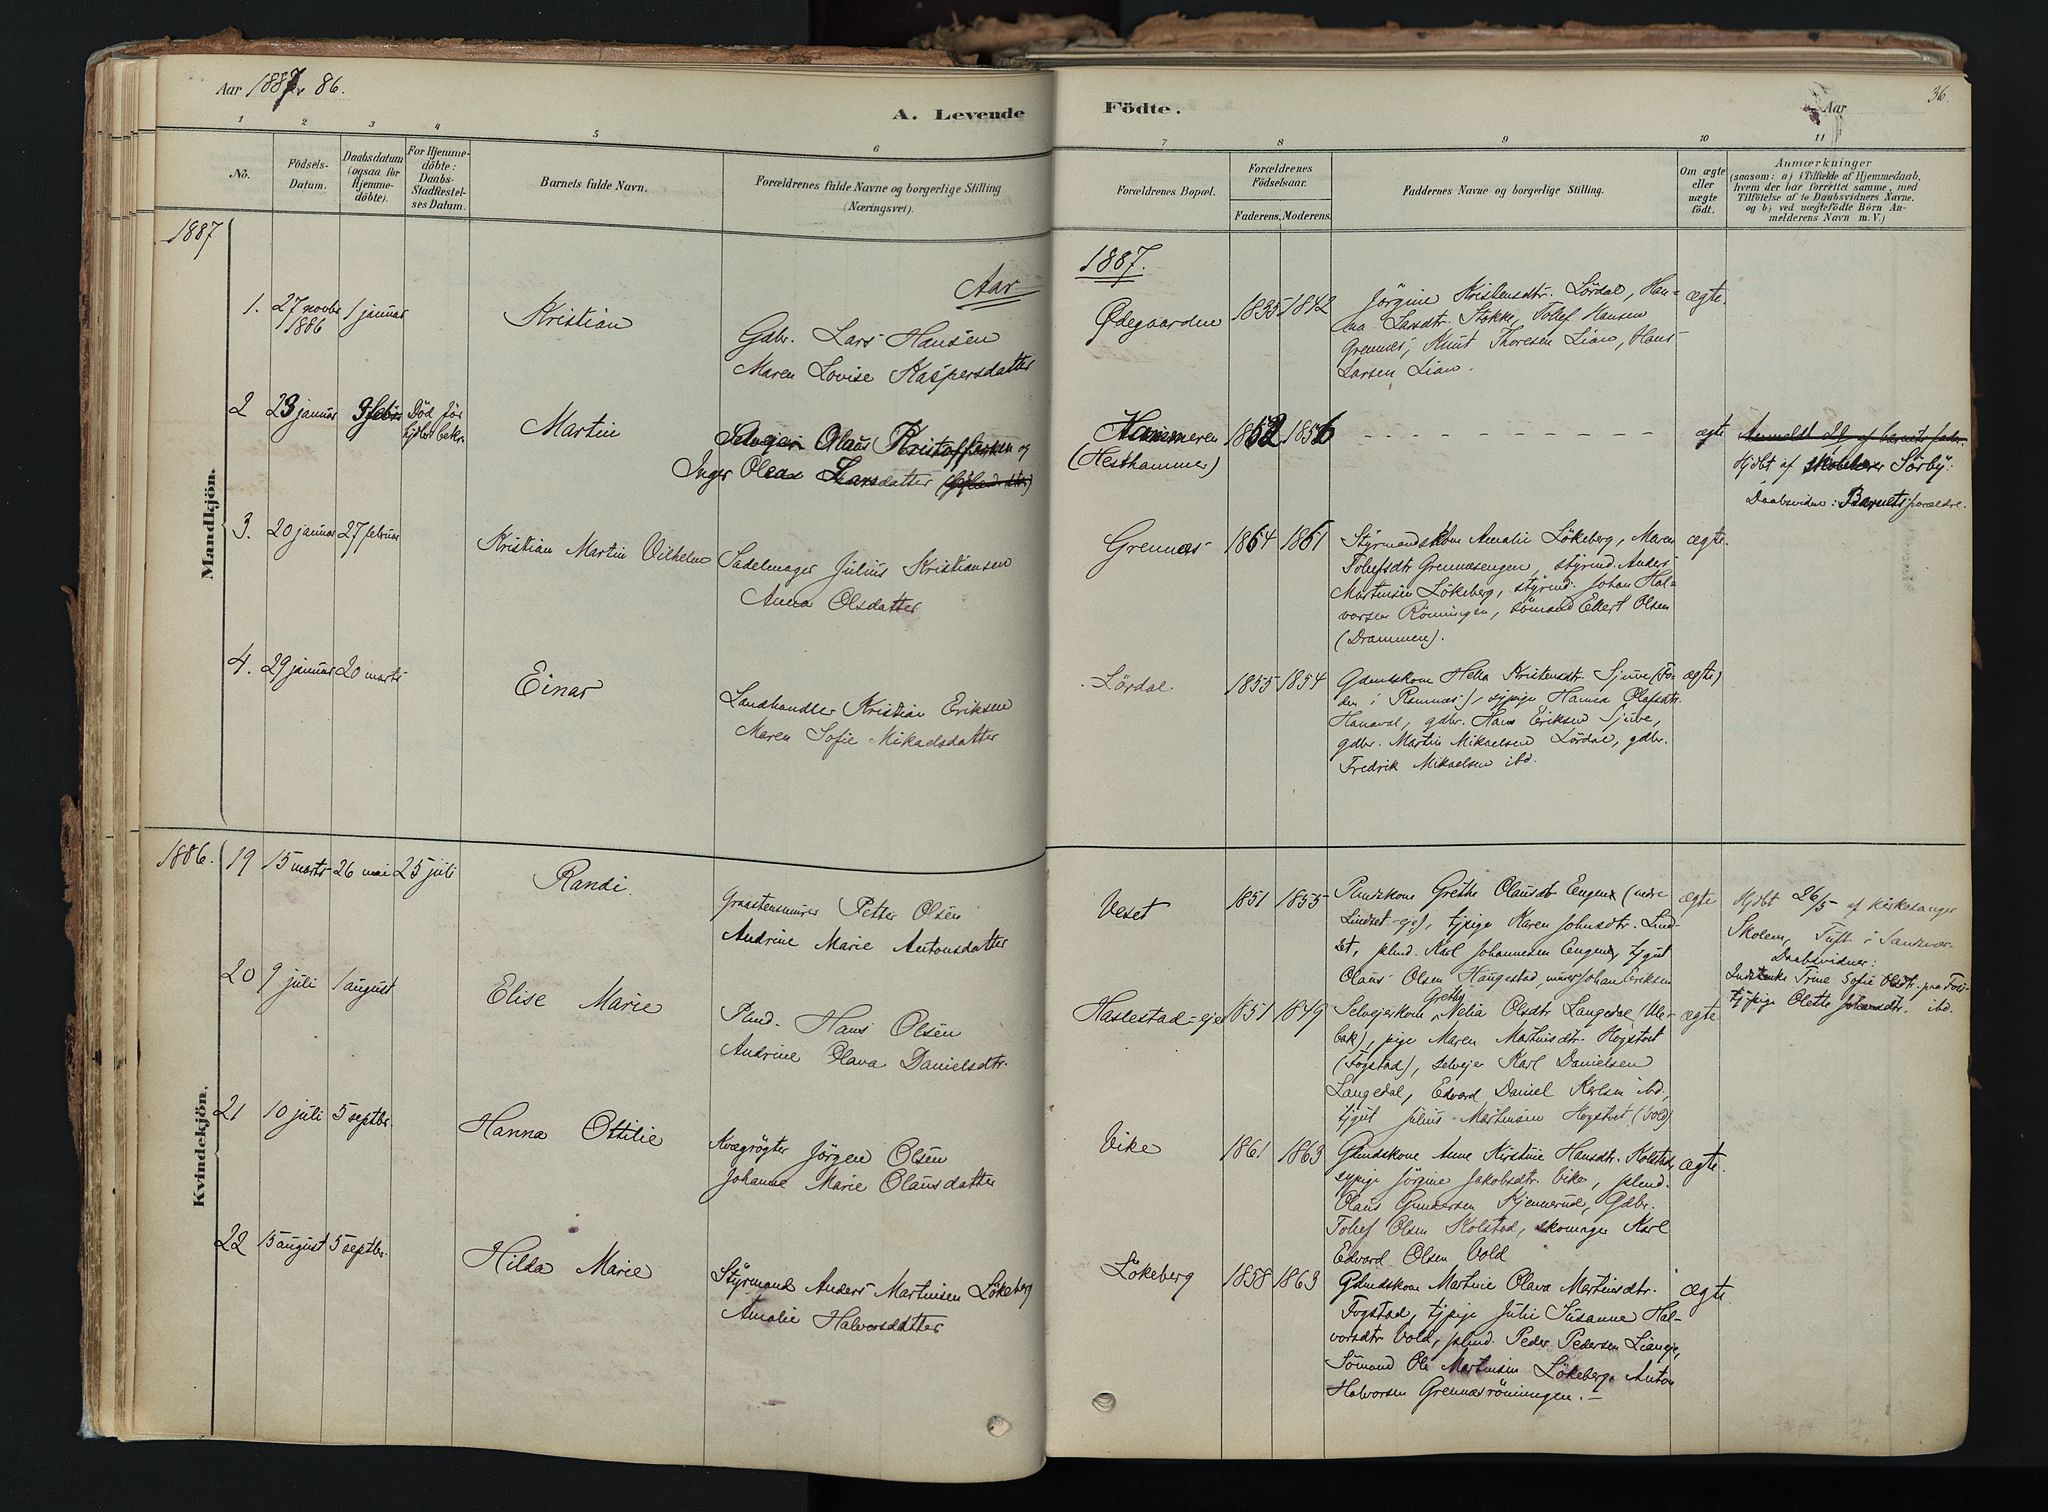 Aar 1887. 86.
A. Levende
1 2 3 4 5 6
No.
Födsels-
Datum.
Daabsdatum
(ogsaa for
Hjemme-
döbte).
For Hjemme-
döbte:
Daabs-
Stadfæstel-
ses Datum.
Barnets fulde Navn.
Forældrenes fulde Navne og borgerlige Stilling
(Næringsvei).
1887
Aar
Mandkjön.
1. 27 novbr 1886 1 januar Kristian
Gabr. Lars Hansen
Maren Lovise Kaspersdatter
2 23 januar 3 febr. Död för hjdøbt bekr. Martin
Selveier Olaus Kristoffersen og
Inger Olea Larsdatter
3. 20 januar 27 februar Kristian Martin Vilhelm
Sadelmager Julius Kristiansen
Anna Olsdatter
4. 29 januar 20 marts Einar
Landhandler Kristian Eriksen
Maren Sofie Mikaelsdatter
1886.
Kvindekjön.
19 15 marts 26 mai 25 juli Randi.
Graastensmurer Petter Olsen
Andrine Marie Antonsdatter
20 9 juli 1 august Elise Marie
Plmd. Hans Olsen
Andrine Olava Danielsdtr.
21 10 juli 5 septbr. Hanna Ottilie
Kvægrögter Jörgen Olsen
Johanne Marie Olausdatter
22 15 august 5 septbr. Hilda Marie
Styrmand Anders Martinsen Lökeberg
Amalie Halvorsdatter
Födte.
Aar
36.
7 8 9 10 11
Forældrenes Bopæl.
Forældrenes
Födselsaar.
Faderens, Moderens.
Faddernes Navne og borgerlige Stilling.
Om ægte
eller
uægte
födt.
Anmærkninger
(saasom: a) i Tilfælde af Hjemmedaab,
hvem der har forrettet samme, med
Tilföielse af to Daabsvidners Navne.
og b) ved uægtefödte Börn An-
melderens Navn m. V.)
1887.
Ødegaarden 1835 1842
Jörgine Kristensdtr. Lördal, Han-
na Larsdtr. Stokke, Tollef Hansen
Grennæs, Knut Thoresen Lian, Hans
Larsen Lian.
ægte.
Hammeren
(Hesthammer)
1852 1856
ægte
Anmeldt 29 af barnets fader.
Hjdbt af skolelærer Sörby:
Daabsvidner: Barnets forældre.
Grennæs 1864 1861
Styrmandskone Amalie Lökeberg, Maren
Tollefsdtr Grennæsengen, styrmd. Anders
Martinsen Lökeberg, styrmd. Johan Hal-
vorsen Röningen, sömand Ellert Olsen
(Drammen).
ægte.
Lördal. 1855 1854
Gdmdskone Helia Kristensdtr. Sjuve (
den i Ramnæs), sypige Hanna Olafsdtr.
Hanaval, gdbr. Hans Eriksen Sjuve,
gdbr. Martin Mikaelsen Lördal, gdbr.
Fredrik Mikaelsen ibd.
ægte
Veset 1851 1855
Plmdskone Grethe Olausdtr Engene (nedre
Lindset-eje), tjpige Karen Johnsdtr. Lind-
set, plmd. Karl Johannesen Engene, tjgut
Olaus Olsen Haugestad, murer Johan Eriksen
ægte
Hjdbt 26/5 af kirkesanger
Skolem, Tuft i Sandsvær.
Daabsvidner:
Indstenke Trine Sofie Olsdtr. paa Foss
tjpige Olette Johansdtr. ibd.
Haslestad-eje 1851 1849
Selveierkone Grethe Nelia Olsdtr Langedal (Ulle-
bak), pige Maren Martinsdtr. Hogstvet
(Fogstad), selveier Karl Danielsen
Langedal, Edvard Daniel Karlsen ibd,
tjgut Julius Martinsen Hogstvet (Vold)
ægte
Vike 1861 1863
Gdmdskone Anne Kirstine Hansdtr. Kolstad,
sypige Jörgine Jakobsdtr. Vike, plmd.
Olaus Gundersen Kjennerud, Gdbr.
Tollef Olsen Kolstad, skomager Karl
Edvard Olsen Vold
ægte
Lökeberg 1858 1863
Gdmdskone Martine Olava Martinsdtr.
Fogstad, tjpige Julie Susanne Hal-
vorsdtr Vold, plmd. Peder Pedersen Lianeje,
Sömand Ole Martinsen Lökeberg, Anton
Halvorsen Grennæsröningen.
ægte.